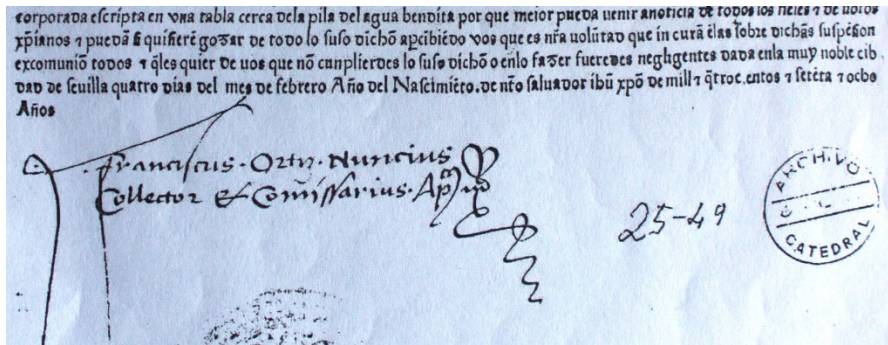 corporada escripta en vna tabla cerca dela pila del agua bendita por que meior pueda uenir anoticia de todos los fieles ⁊ de uotos
xp̃ianos ⁊ puedã si quisierẽ gozar de todo lo suso dicho apcibiẽdo vos que es nr̃a uolũtad que in curã ẽlas sobre dichas suspẽsion
excomuniõ todos ⁊ q̃les quier de uos que nõ cunplierdes lo suso dicho o enlo fazer fueredes negligentes dada enla muy noble cib
dad de seuilla quatro dias del mes de febrero Año del Nascimiẽto. de nr̃o saluador ihũ xpõ de mill ⁊ q̃troc.entos ⁊ setẽta ⁊ ocho
Años
.Franciscus. Ortiz. Nuncius
Collector & Com̃issarius. Ap
25-49
ARCHIVO
CATEDRAL